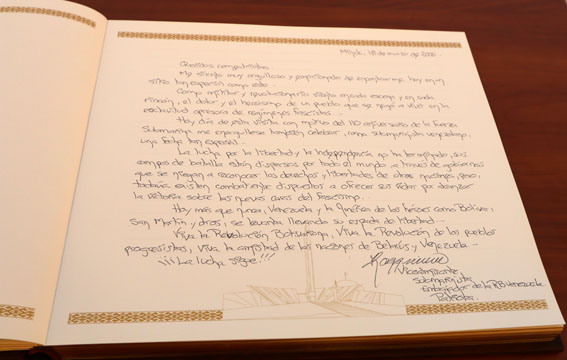 Minsk, 18 de marzo de 2016.
Queridos compatriotas:
Me siento muy orgulloso y de encontrarme hoy en un
sitio tan especial como este.
Como militar y revolucionario en cada escena y en cada
rincón, el dolor y el heroísmo de un pueblo que se negó a vivir en la
esclavitud opresora de regímenes fascistas.
Hoy día de esta visita con motivo del 110 aniversario de la Fuerza
Submarina me enorgullece también celebrar, como submarinista venezolano,
una fecha tan especial.
La lucha por la libertad y la Independencia no ha terminado, sus
campos de batalla están dispersos por todo el mundo a través de gobiernos
que se niegan a reconocer los derechos y libertades de otras naciones, pero,
todavía existen combatientes dispuestos a ofrecer sus vidas por alcanzar
la victoria sobre las nuevas caras del fascismo.
Hoy más que nunca, Venezuela y la de los héroes como Bolívar,
San Martín y otros, se levanta llevando su espada de libertad.
Viva la Revolución Bolivariana, Viva la Revolución de los pueblos
progresistas, Viva la amistad de las naciones de Belarús y Venezuela.
¡¡¡La lucha sigue!!!
Vicealmirante
Submarinista
Embajador de la RB Venezuela